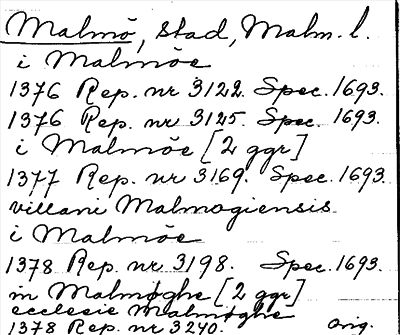 Malmö, stad, Malm. l.
i Malmöe
1376 Rep. nr 3122. Spec. 1693.
1376 Rep. nr 3125. Spec. 1693.
i Malmöe [2 ggr]
1377 Rep. nr 3169. Spec. 1693
villani Malmogiensis
i Malmöe
1378 Rep. nr 3198. Spec. 1693.
in Malmøghe [2 ggr]
ecclesie Malmøghe
1378 Rep. nr 3240. orig.